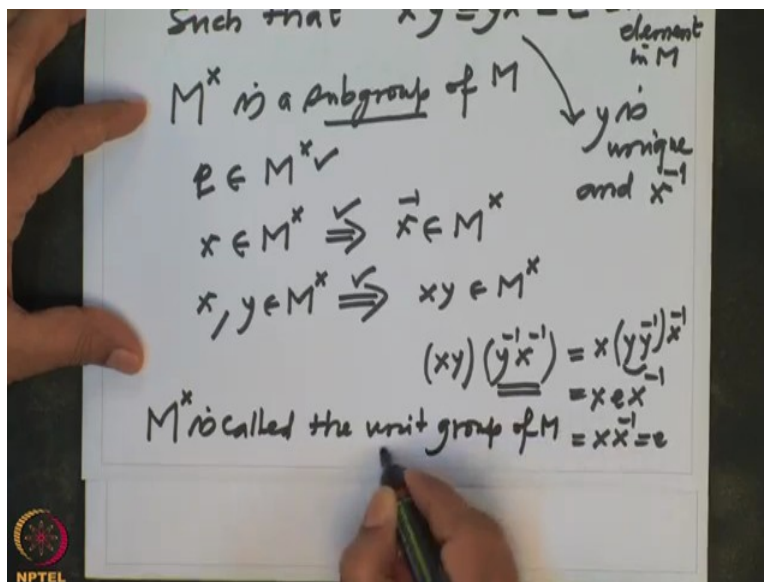 Such that xy = yx = e =
element
in M
M^x is a subgroup of M
y is
unique
and x^-1
e ∈ M^x ✓
x ∈ M^x ⇒ x^-1 ∈ M^x
✓
x, y ∈ M^x ⇒ xy ∈ M^x
✓
(xy)(y^-1 x^-1) = x(y y^-1)x^-1
= x e x^-1
M^x is called the unit group of M = x x^-1 = e
NPTEL